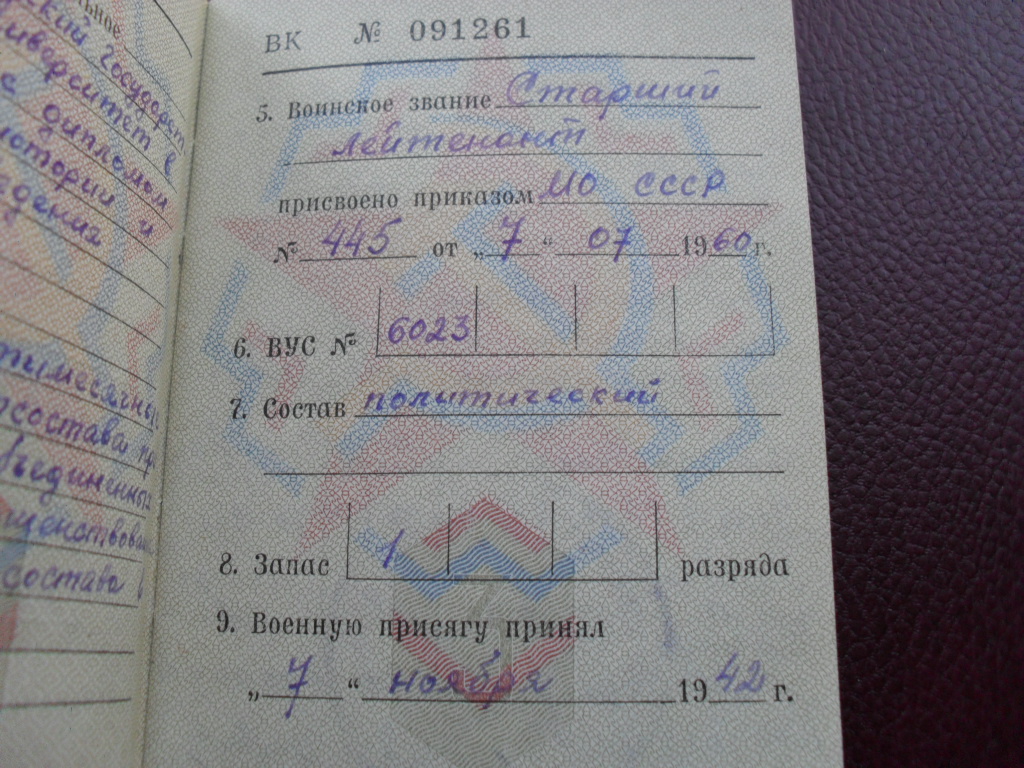 льное
ский государст
ниверситет в
с дипломом
истории и
ведения
тимесячные
состава пр
бъединенных
щенствован
состава в
ВК № 091261
5. Воинское звание Старший
лейтенант
присвоено приказом МО СССР
№ 445 от „7“ 07 1960 г.
6. ВУС № 6023
7. Состав политический
8. Запас 1 разряда
9. Военную присягу принял
„7“ ноября 1942 г.